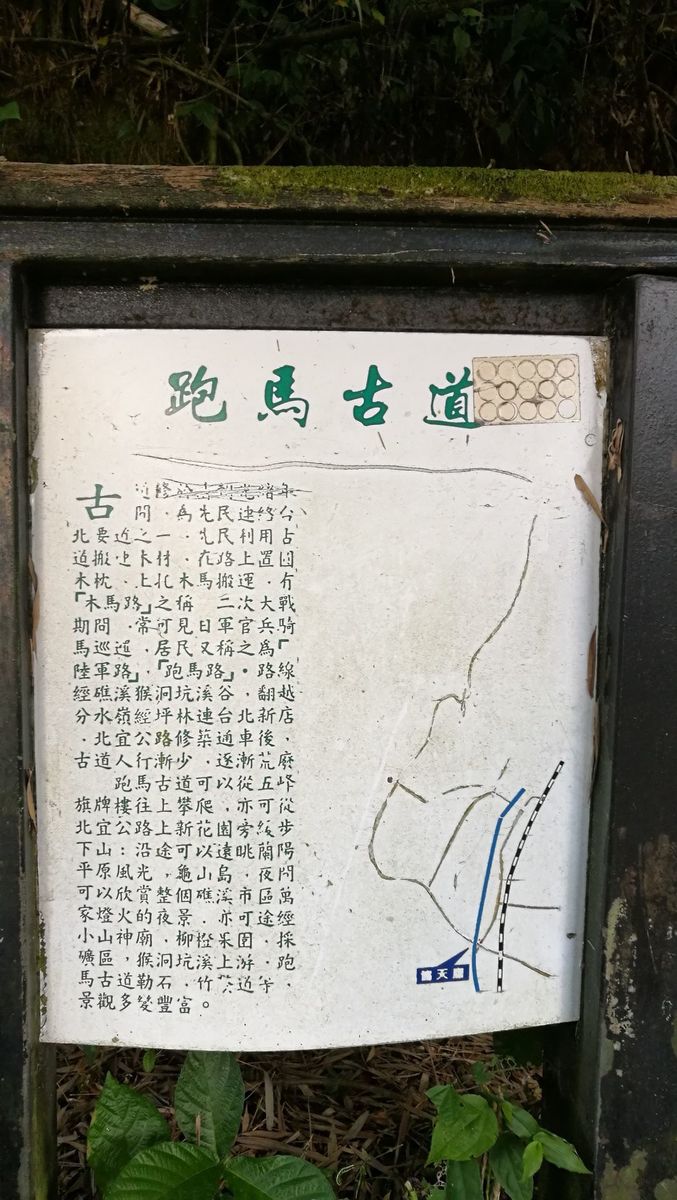 跑馬古道
古
間.為先民連絡台
北要近之一.先民利用古
道搬木材.在路上置固有
木枕.上扎木馬搬運.
「木馬路」之稱 二次大戰
期間.常可見日軍官兵騎
馬巡邏.居民又稱之為「
陸軍路」,「跑馬路」.路線
經礁溪猴洞坑溪谷,翻越
分水嶺經坪林連台北新店,
.北宜公路修築通車後,
古道人行漸少,逐漸荒廢
跑馬古道可以從五峰
旗牌樓往上攀爬,亦可從
北宜公路上新花園旁緩步
下山:沿途可以遠眺蘭陽
平原風光,龜山島.夜間
可以欣賞整個礁溪市區萬
家燈火的夜景.亦可途經
小山神廟,柳橙果園.採
礦區,猴洞坑溪上游.跑
馬古道勒石.竹道平,
景觀多變豐富。
協天廟